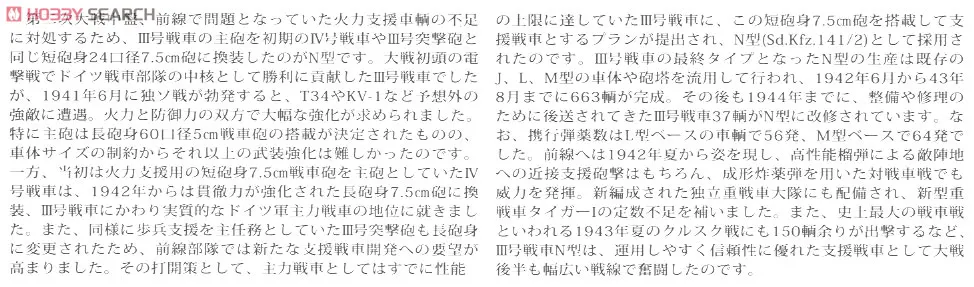 HOBBY SEARCH
第二次大戦中盤、前線で問題となっていた火力支援車輌の不足
に対処するため、Ⅲ号戦車の主砲を初期のⅣ号戦車やⅢ号突撃砲と
同じ短砲身24口径7.5㎝砲に換装したのがN型です。大戦初頭の電
撃戦でドイツ戦車部隊の中核として勝利に貢献したⅢ号戦車でした
が、1941年6月に独ソ戦が勃発すると、T34やKV-1など予想外の
強敵に遭遇。火力と防御力の双方で大幅な強化が求められました。
特に主砲は長砲身60口径5㎝戦車砲の搭載が決定されたものの、
車体サイズの制約からそれ以上の武装強化は難しかったのです。
一方、当初は火力支援用の短砲身7.5㎝戦車砲を主砲としていたⅣ
号戦車は、1942年からは貫徹力が強化された長砲身7.5㎝砲に換
装、Ⅲ号戦車にかわり実質的なドイツ軍主力戦車の地位に就きまし
た。また、同様に歩兵支援を主任務としていたⅢ号突撃砲も長砲身
に変更されたため、前線部隊では新たな支援戦車開発への要望が
高まりました。その打開策として、主力戦車としてはすでに性能
の上限に達していたⅢ号戦車に、この短砲身7.5㎝砲を搭載して支
援戦車とするプランが提出され、N型(Sd.Kfz.141/2)として採用さ
れたのです。Ⅲ号戦車の最終タイプとなったN型の生産は既存の
J、L、M型の車体や砲塔を流用して行われ、1942年6月から43年
8月までに663輌が完成。その後も1944年までに、整備や修理の
ために後送されてきたⅢ号戦車37輌がN型に改修されています。な
お、携行弾薬数はL型ベースの車輌で56発、M型ベースで64発で
した。前線へは1942年夏から姿を現し、高性能榴弾による敵陣地
への近接支援砲撃はもちろん、成形炸薬弾を用いた対戦車戦でも
威力を発揮。新編成された独立重戦車大隊にも配備され、新型重
戦車タイガーIの定数不足を補いました。また、史上最大の戦車戦
といわれる1943年夏のクルスク戦にも150輌余りが出撃するなど、
Ⅲ号戦車N型は、運用しやすく信頼性に優れた支援戦車として大戦
後半も幅広い戦線で奮闘したのです。